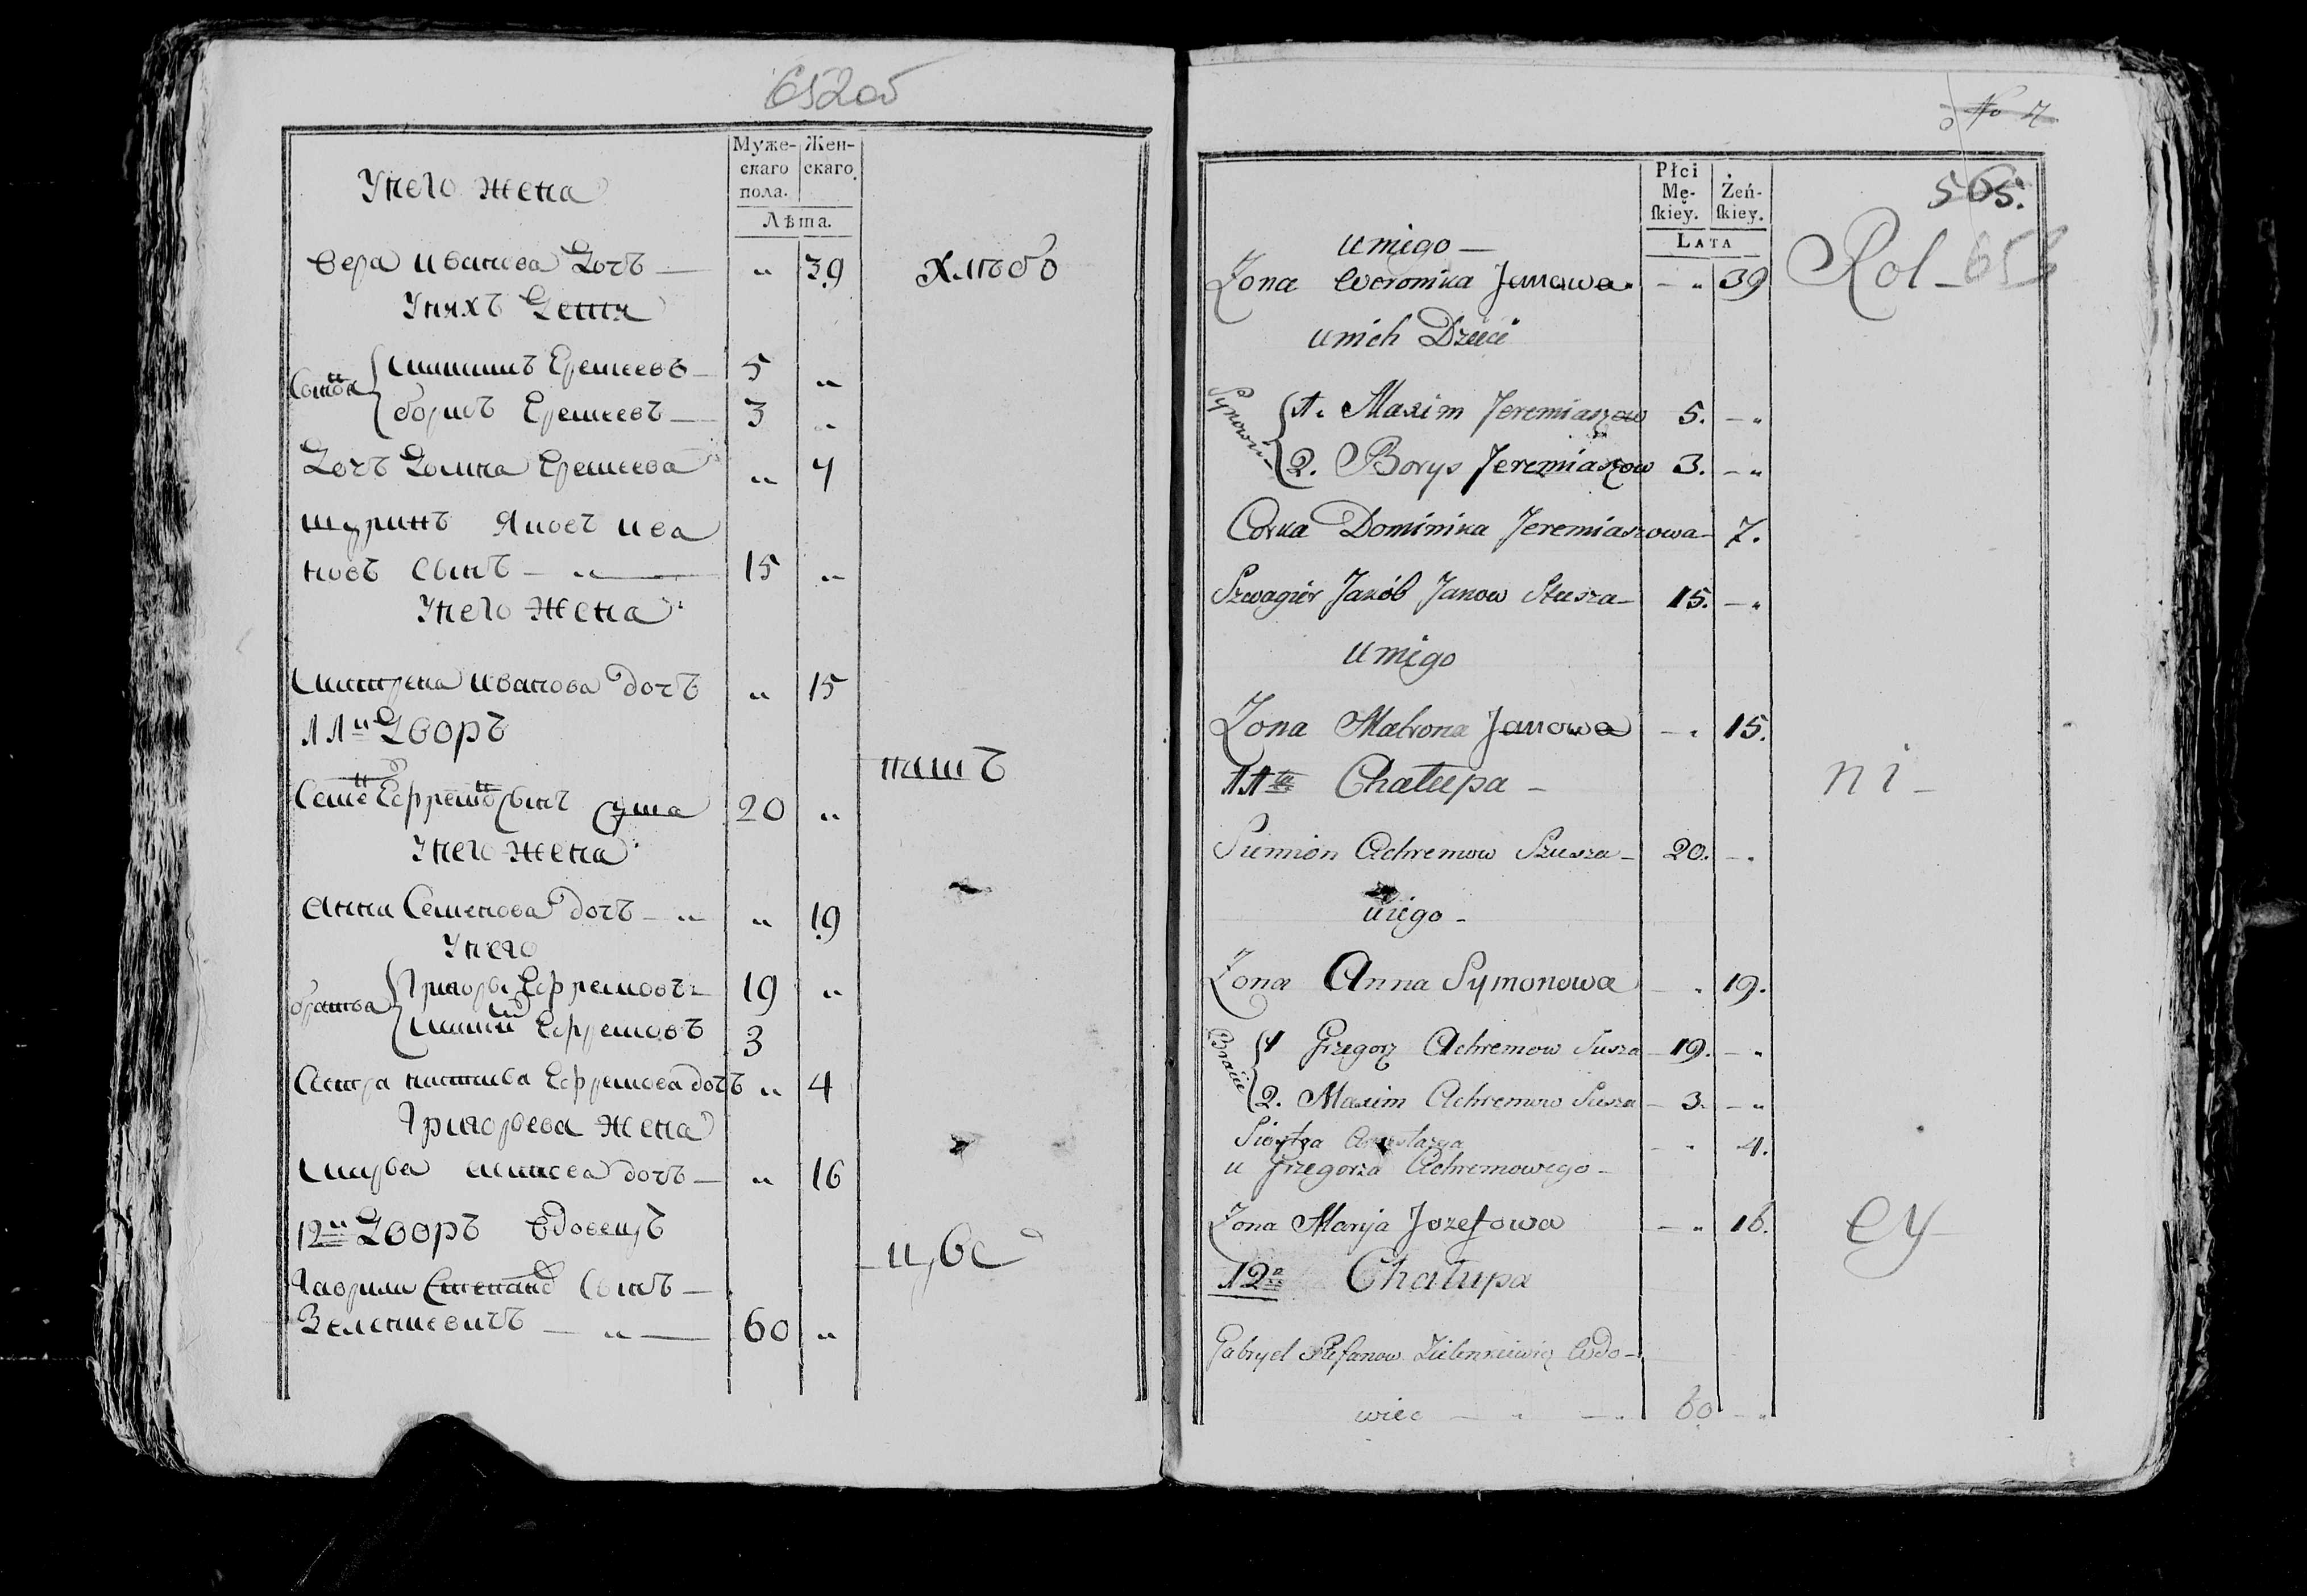 652об
Муже-
скаго
пола.
Жен-
скаго.
Лѣта.
Унего жена
Вера Иванова дочь — „ 39
хлѣбо
Унихъ дети
Сыновья
Максимъ Еремеевъ — 5 „
Борисъ Еремеевъ — 3 „
Дочь Домна Еремеева „ 7
шуринъ Яковъ Ива
новъ Сынъ — „ — 15 „
Унего жена
Матрена Иванова дочь „ 15
11й Дворъ
пашъ
Семе Ефремо Сынъ Суша 20 „
Унего жена
Анна Семенова дочь — „ „ 19
Унего
братья
Григорьи Ефремовъ 19 „
Максим Ефремовъ 3
Сестра Настасья Ефремова дочь „ 4
Григорьева жена
Марья дочь — „ 16
12й Дворъ вдовецъ
цы
Гаврила Степано Сынъ —
Зеленкевичъ — „ — 60 „
No 7
565.
Płci
Mę-
skiey.
Żeń-
skiey.
LATA
u niego —
Zona Weronika Janowa — „ 39
Rol
u nich Dzieci
Synowie
1. Maxim Jeremiaszow 5. — „
2. Borys Jeremiaszow 3. — „
Corka Dominika Jeremiaszowa — 7.
Szwagier Jakób Janow Susza — 15. — „
u niego
Zona Matrona Janowa — „ 15.
11ta Chałupa —
ni —
Siemion Achremow Szusza — 20. — „
u niego —
Zona Anna Symonowa — „ 19.
Bracie
1 Grzegorz Achremow Susza — 19. — „
2. Maxim Achremow Susza — 3. — „
Siostra — „ 4.
u Grzegorza Achremowego —
Zona Marija Jozefowa — „ 16.
cy
12a Chałupa
Gabryel Stefanow Zielenkiewicz Wdo-
wiec — „ — „ 60 — „